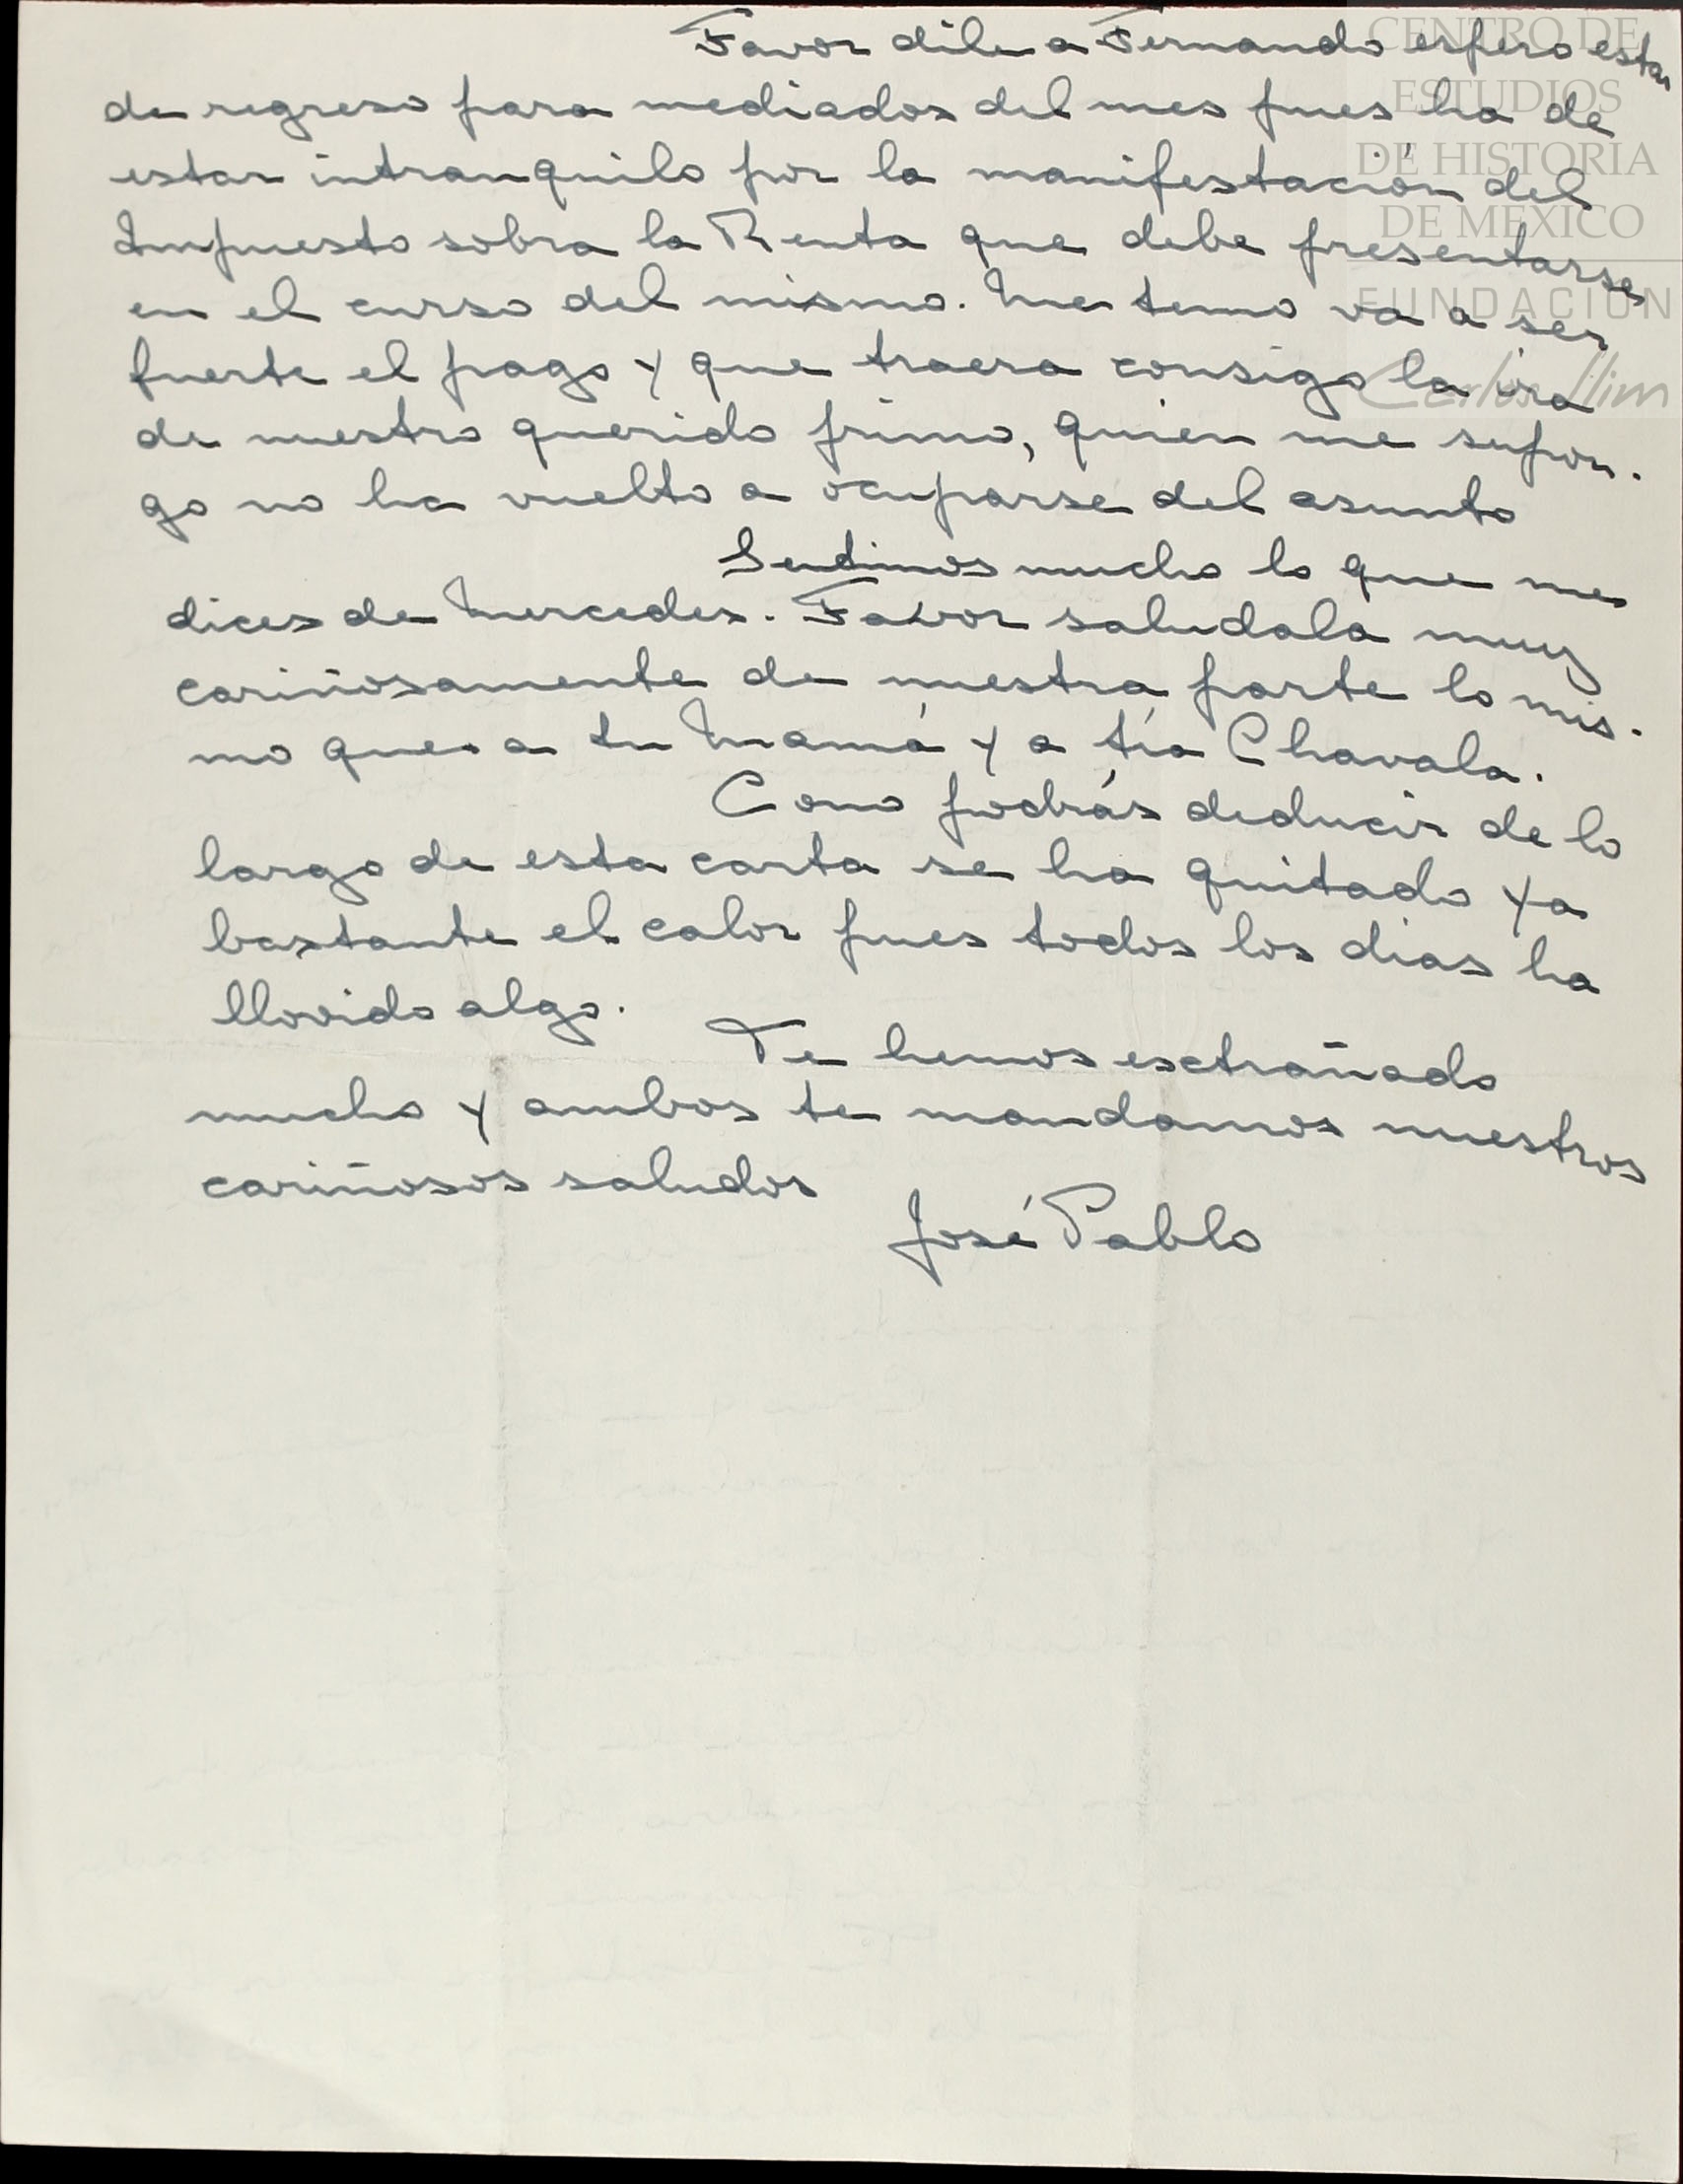 Favor dile a Fernando espero estar
de regreso para mediados del mes pues ha de
estar intranquilo por la manifestación del
Impuesto sobre la Renta que debe presentarse
en el curso del mismo. Me temo va a ser
fuerte el pago y que traera consigo la ira
de nuestro querido primo, quien me supon-
go no ha vuelto a ocuparse del asunto
Sentimos mucho lo que me
dices de Mercedes. Favor saludala muy
cariñosamente de nuestra parte lo mis-
mo que a tu Mamá y a tía Chavala.
Como podrás deducir de lo
largo de esta carta se ha quitado ya
bastante el calor pues todos los dias ha
llovido algo.
Te hemos extrañado
mucho y ambos te mandamos nuestros
cariñosos saludos
José Pablo
CENTRO DE
ESTUDIOS
DE HISTORIA
DE MEXICO
FUNDACIÓN
Carlos Slim